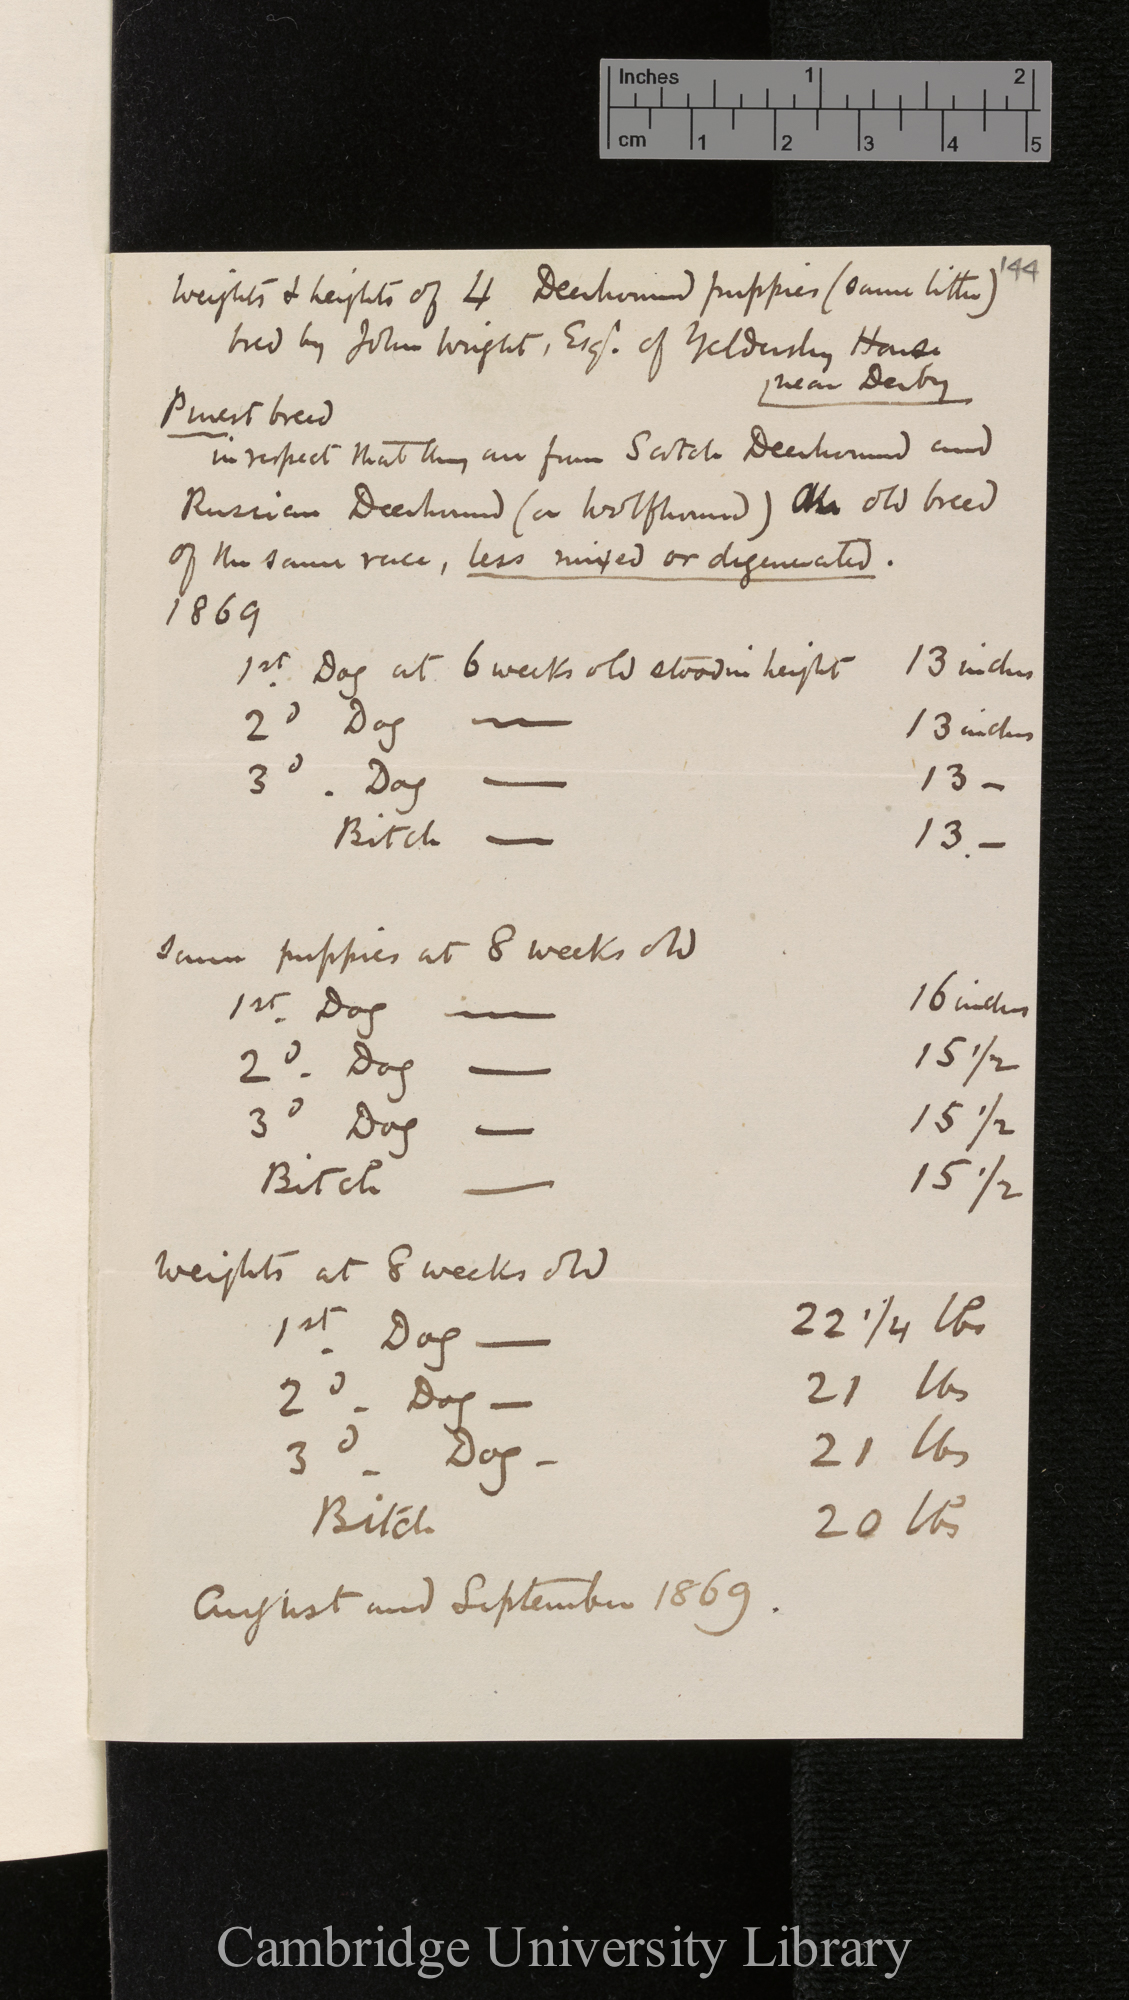 Inches 1 2
cm 1 2 3 4 5
144
Weights & heights of 4 Deerhound puppies (same litter)
bred by John Wright, Esqr. of Yeldersley House
near Derby
Purest breed
in respect that they are from Scotch Deerhound and
Russian Deerhound (or Wolfhound) an old breed
of the same race, less mixed or degenerated.
1869
1st. Dog at 6 weeks old stood in height 13 inches
2d Dog — 13 inches
3d. Dog — 13 –
Bitch — 13. –
Same puppies at 8 weeks old
1st. Dog — 16 inches
2d. Dog — 15 1/2
3d Dog — 15 1/2
Bitch — 15 1/2
Weights at 8 weeks old
1st. Dog — 22 1/4 lbs
2d. Dog — 21 lbs
3d. Dog – 21 lbs
Bitch 20 lbs
August and September 1869.
Cambridge University Library